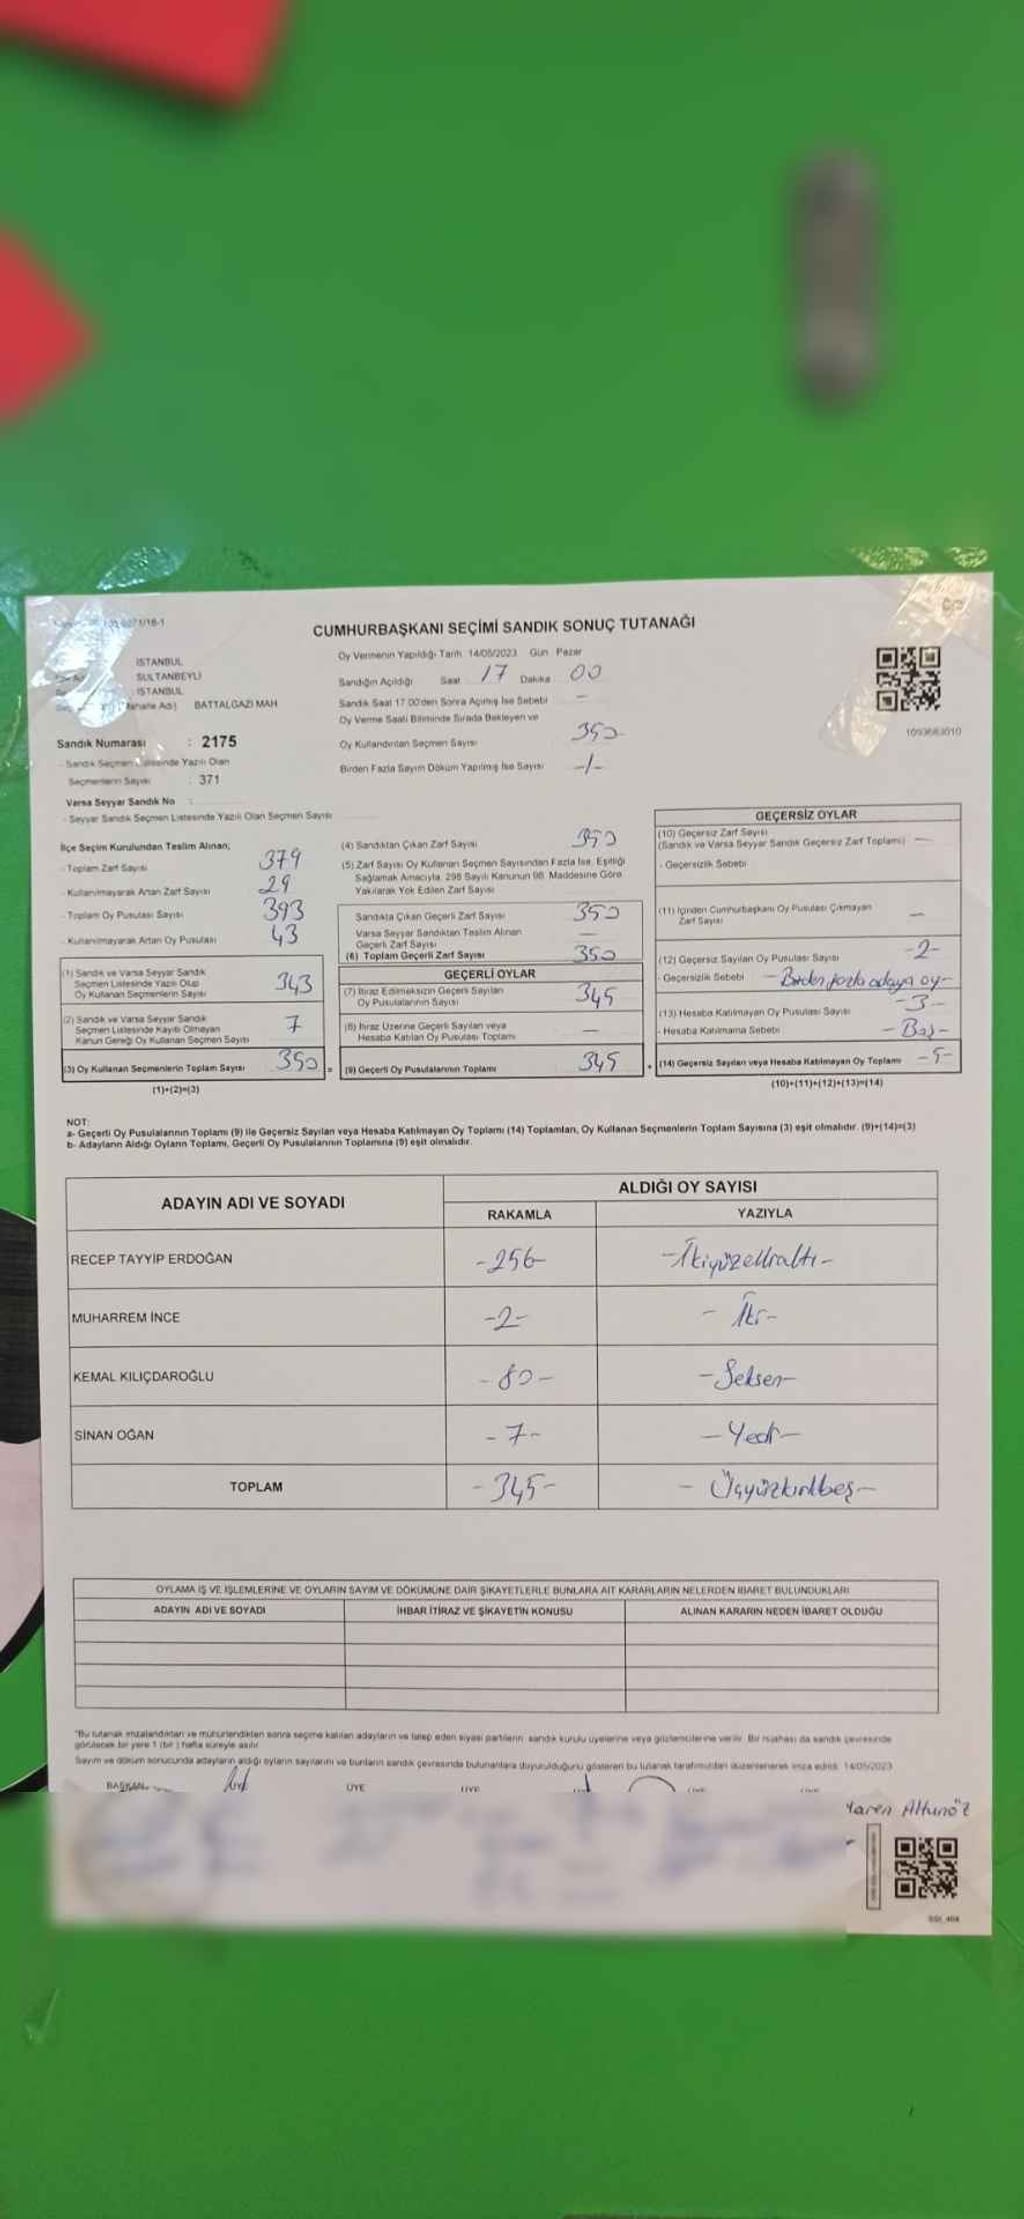 CUMHURBAŞKANI SEÇİMİ SANDIK SONUÇ TUTANAĞI
İSTANBUL
SULTANBEYLİ
İSTANBUL
BATTALGAZİ MAH
Sandık Numarası : 2175
- Sandık Seçmen Listesinde Yazılı Olan
Seçmenlerin Sayısı : 371
Varsa Seyyar Sandık No :
- Seyyar Sandık Seçmen Listesinde Yazılı Olan Seçmen Sayısı
Oy Vermenin Yapıldığı Tarih 14/05/2023 Gün Pazar
Sandığın Açıldığı Saat 17 Dakika 00
Sandık Saat 17.00'den Sonra Açılmış İse Sebebi -
Oy Verme Saati Bitiminde Sırada Bekleyen ve
Oy Kullandırılan Seçmen Sayısı 350
Birden Fazla Sayım Döküm Yapılmış İse Sayısı -/-
1093683010
İlçe Seçim Kurulundan Teslim Alınan;
- Toplam Zarf Sayısı 379
- Kullanılmayarak Artan Zarf Sayısı 29
- Toplam Oy Pusulası Sayısı 393
- Kullanılmayarak Artan Oy Pusulası 43
(1) Sandık ve Varsa Seyyar Sandık
Seçmen Listesinde Yazılı Olup
Oy Kullanan Seçmenlerin Sayısı 343
(2) Sandık ve Varsa Seyyar Sandık
Seçmen Listesinde Kayıtlı Olmayan
Kanun Gereği Oy Kullanan Seçmen Sayısı 7
(3) Oy Kullanan Seçmenlerin Toplam Sayısı 350 =
(1)+(2)=(3)
(4) Sandıktan Çıkan Zarf Sayısı 350
(5) Zarf Sayısı Oy Kullanan Seçmen Sayısından Fazla İse, Eşitliği
Sağlamak Amacıyla, 298 Sayılı Kanunun 98. Maddesine Göre
Yakılarak Yok Edilen Zarf Sayısı
Sandıkta Çıkan Geçerli Zarf Sayısı 350
Varsa Seyyar Sandıktan Teslim Alınan
Geçerli Zarf Sayısı —
(6) Toplam Geçerli Zarf Sayısı 350
GEÇERLİ OYLAR
(7) İtiraz Edilmeksizin Geçerli Sayılan
Oy Pusulalarının Sayısı 345
(8) İtiraz Üzerine Geçerli Sayılan veya
Hesaba Katılan Oy Pusulası Toplamı —
(9) Geçerli Oy Pusulalarının Toplamı 345 +
GEÇERSİZ OYLAR
(10) Geçersiz Zarf Sayısı
(Sandık ve Varsa Seyyar Sandık Geçersiz Zarf Toplamı) —
- Geçersizlik Sebebi
(11) İçinden Cumhurbaşkanı Oy Pusulası Çıkmayan
Zarf Sayısı —
(12) Geçersiz Sayılan Oy Pusulası Sayısı -2-
- Geçersizlik Sebebi - Birden fazla adaya oy -
(13) Hesaba Katılmayan Oy Pusulası Sayısı -3-
- Hesaba Katılmama Sebebi - Boş -
(14) Geçersiz Sayılan veya Hesaba Katılmayan Oy Toplamı -5-
(10)+(11)+(12)+(13)=(14)
NOT:
a- Geçerli Oy Pusulalarının Toplamı (9) ile Geçersiz Sayılan veya Hesaba Katılmayan Oy Toplamı (14) Toplamları, Oy Kullanan Seçmenlerin Toplam Sayısına (3) eşit olmalıdır. (9)+(14)=(3)
b- Adayların Aldığı Oyların Toplamı, Geçerli Oy Pusulalarının Toplamına (9) eşit olmalıdır.
ADAYIN ADI VE SOYADI
ALDIĞI OY SAYISI
RAKAMLA YAZIYLA
RECEP TAYYİP ERDOĞAN -256- -İkiyüzelliraltı-
MUHARREM İNCE -2- - İki -
KEMAL KILIÇDAROĞLU - 80 - - Seksen -
SİNAN OĞAN - 7 - - Yedi -
TOPLAM - 345 - - Üçyüzkırkbeş -
OYLAMA İŞ VE İŞLEMLERİNE VE OYLARIN SAYIM VE DÖKÜMÜNE DAİR ŞİKAYETLERLE BUNLARA AİT KARARLARIN NELERDEN İBARET BULUNDUKLARI
ADAYIN ADI VE SOYADI İHBAR İTİRAZ VE ŞİKAYETİN KONUSU ALINAN KARARIN NEDEN İBARET OLDUĞU
*Bu tutanak imzalandıktan ve mühürlendikten sonra seçime katılan adayların ve talep eden siyasi partilerin sandık kurulu üyelerine veya gözlemcilerine verilir. Bir nüshası da sandık çevresinde
görülecek bir yere 1 (bir ) hafta süreyle asılır.
Sayım ve döküm sonucunda adayların aldığı oyların sayılarını ve bunların sandık çevresinde bulunanlara duyurulduğunu gösteren bu tutanak tarafımızdan düzenlenerek imza edildi. 14/05/2023
BAŞKAN ÜYE
Yaren Altunöz